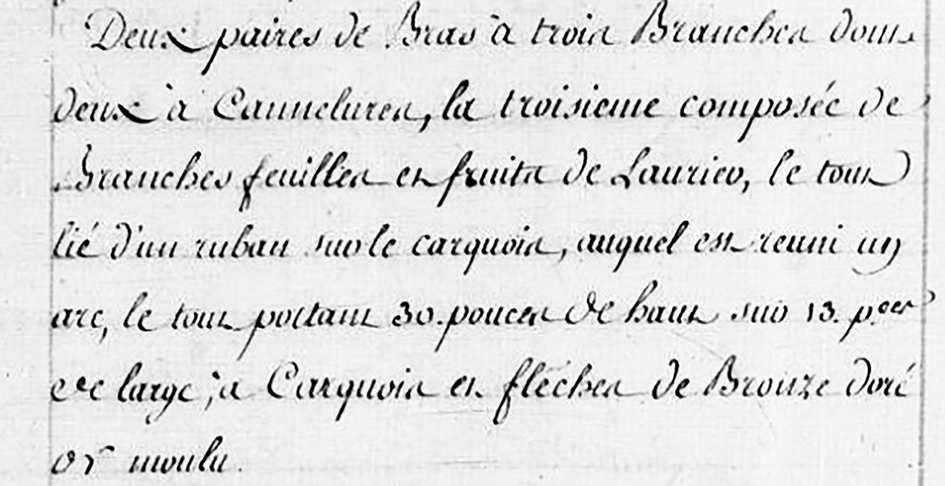 Deux paires de Bras à trois Branches dont
deux à Cannelures, la troisieme composée de
Branches feuilles et fruits de Laurier, le tout
lié d'un ruban sur le carquois, auquel est reuni un
arc, le tout portant 30. pouces de haut sur 13. p.ces
de large, à Carquois et fléches de Bronze doré
or moulu